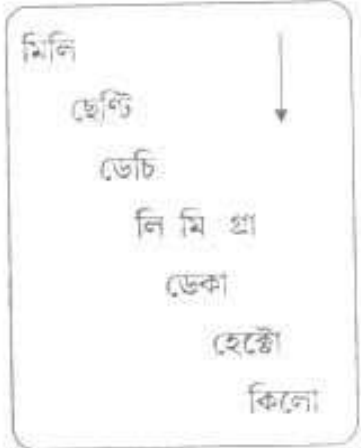 মিলি
ছেণ্টি
ডেচি
লি মি গ্রা
ডেকা
হেক্টো
কিলো